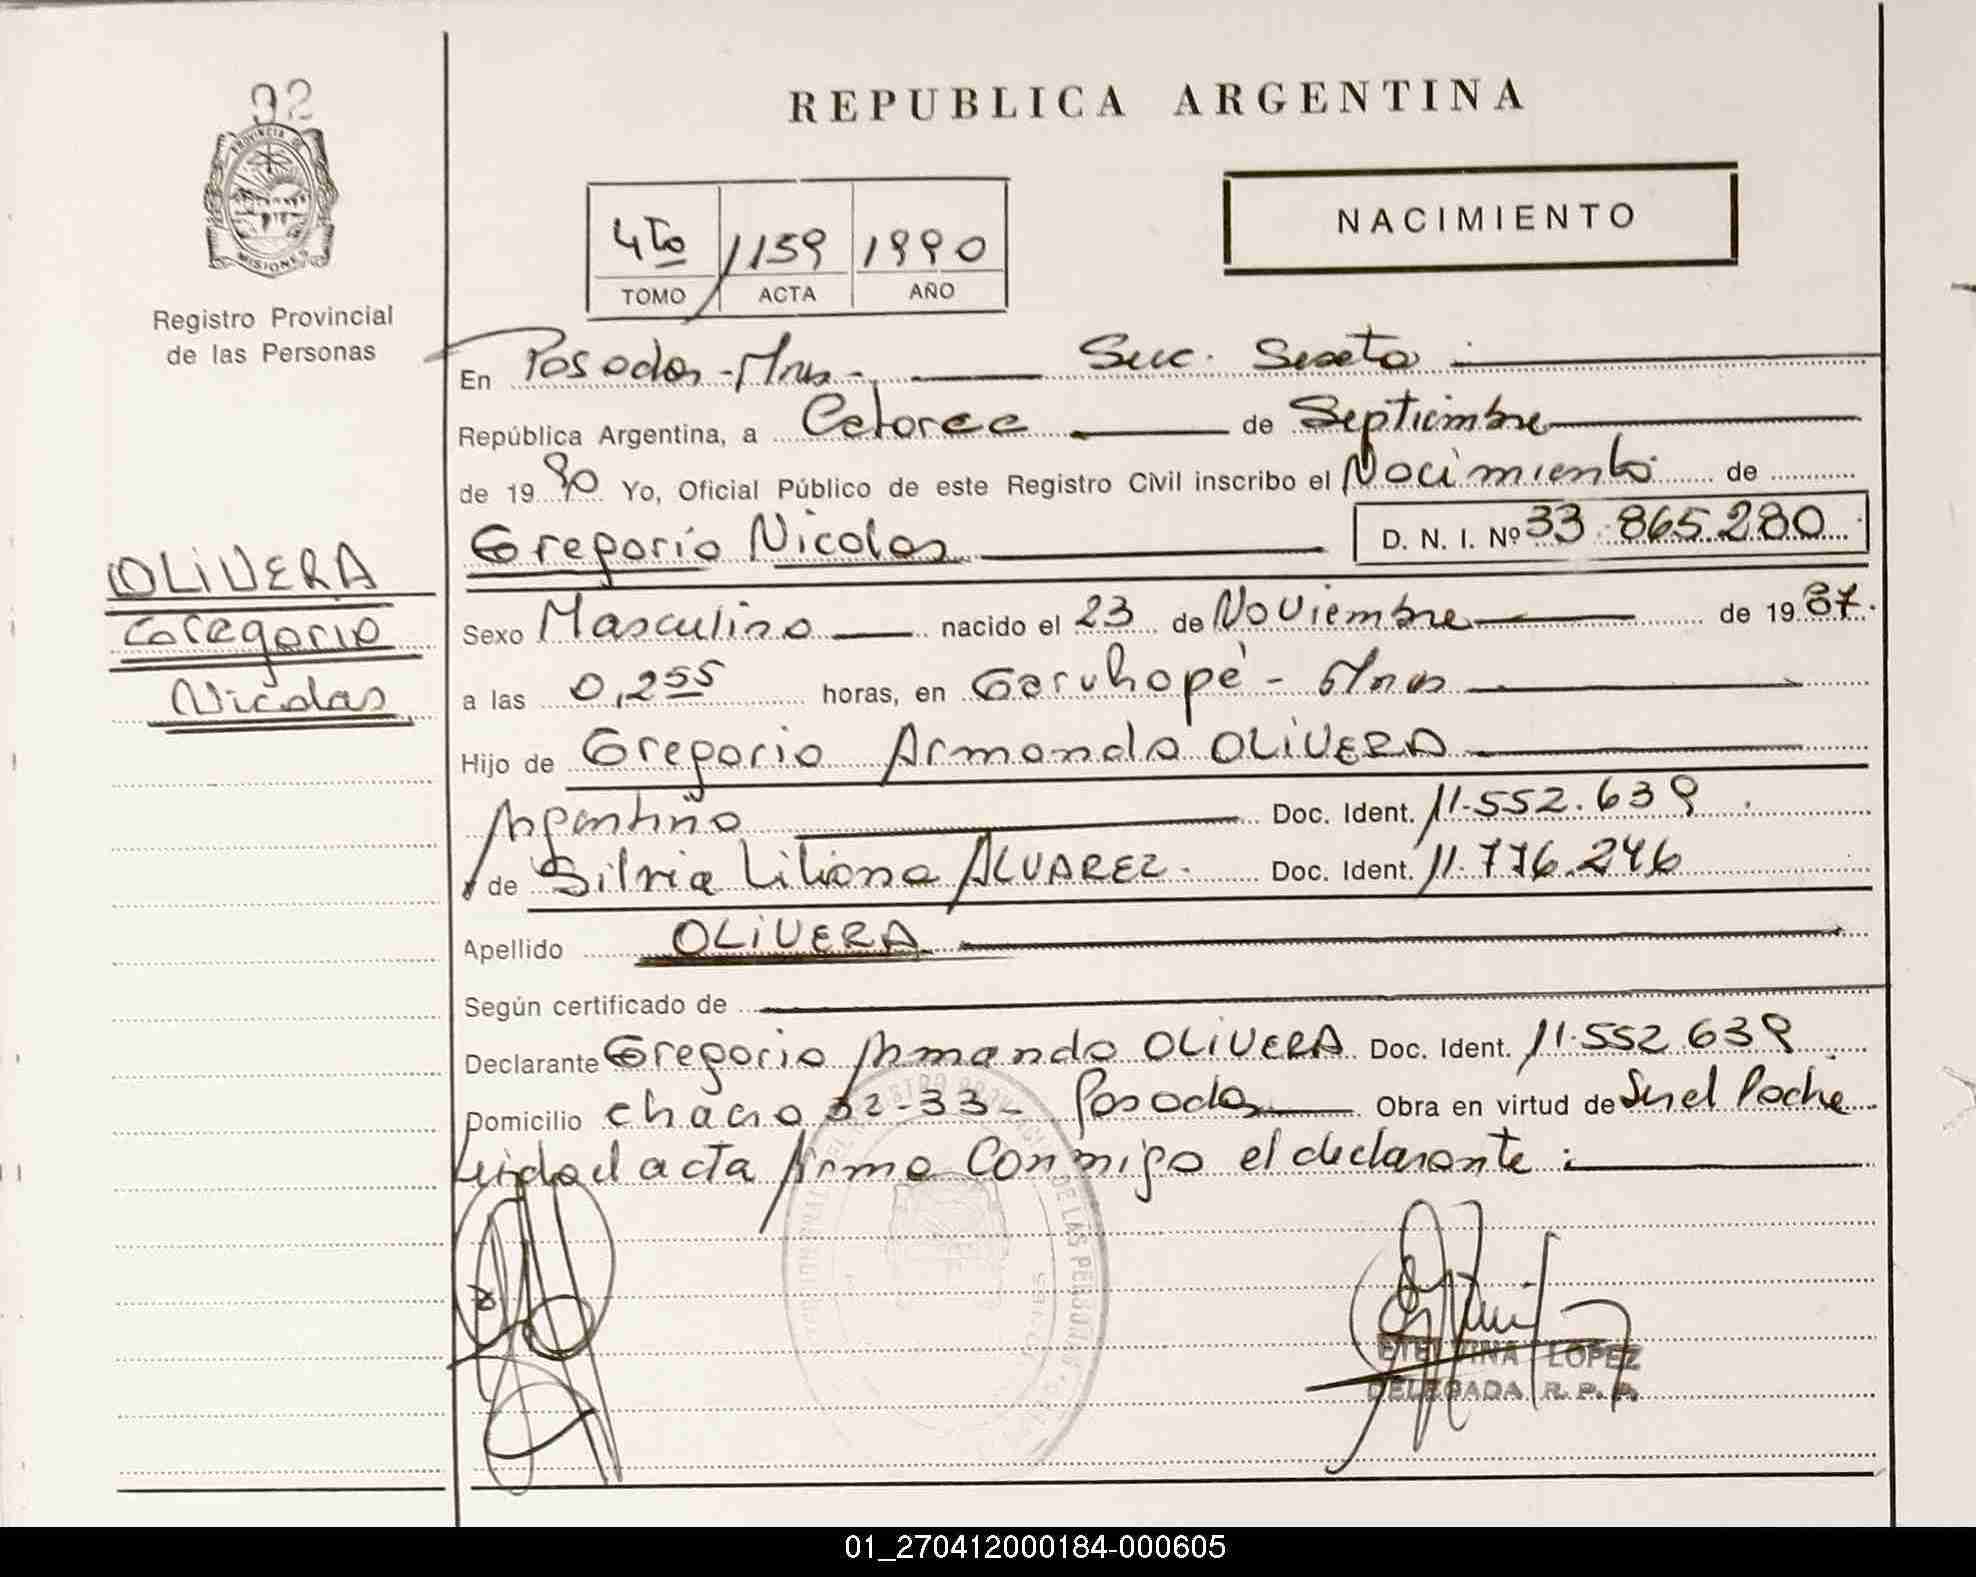 92
PROVINCIA DE
MISIONES
Registro Provincial
de las Personas
OLIVERA
Gregorio
Nicolas
REPUBLICA ARGENTINA
4to 1159 1990
TOMO ACTA AÑO
NACIMIENTO
En Posadas - Mnes - Suc. Sexta
República Argentina, a Catorce de Septiembre
de 1990 Yo, Oficial Público de este Registro Civil inscribo el Nacimiento de
Gregorio Nicolas D. N. I. Nº 33.865.280
Sexo Masculino nacido el 23 de Noviembre de 1987.
a las 0,255 horas, en Garuhapé - Mnes
Hijo de Gregorio Armando OLIVERA
Argentino Doc. Ident. 11.552.639
y de Silvia Liliana ALVAREZ. Doc. Ident. 11.776.246
Apellido OLIVERA
Según certificado de
Declarante Gregorio Armando OLIVERA Doc. Ident. 11.552.639
Domicilio chacra 32-33- Posadas Obra en virtud de
Leida el acta firma Conmigo el declarante :
DE LAS PERSONAS
ETELVINA LOPEZ
DELEGADA R. P. P.
01_270412000184-000605